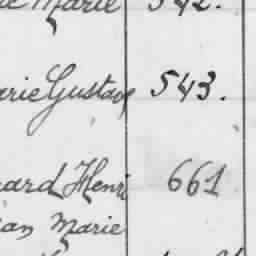 Marie 542.
arie Gustave 543.
ard Henri 661
an Marie